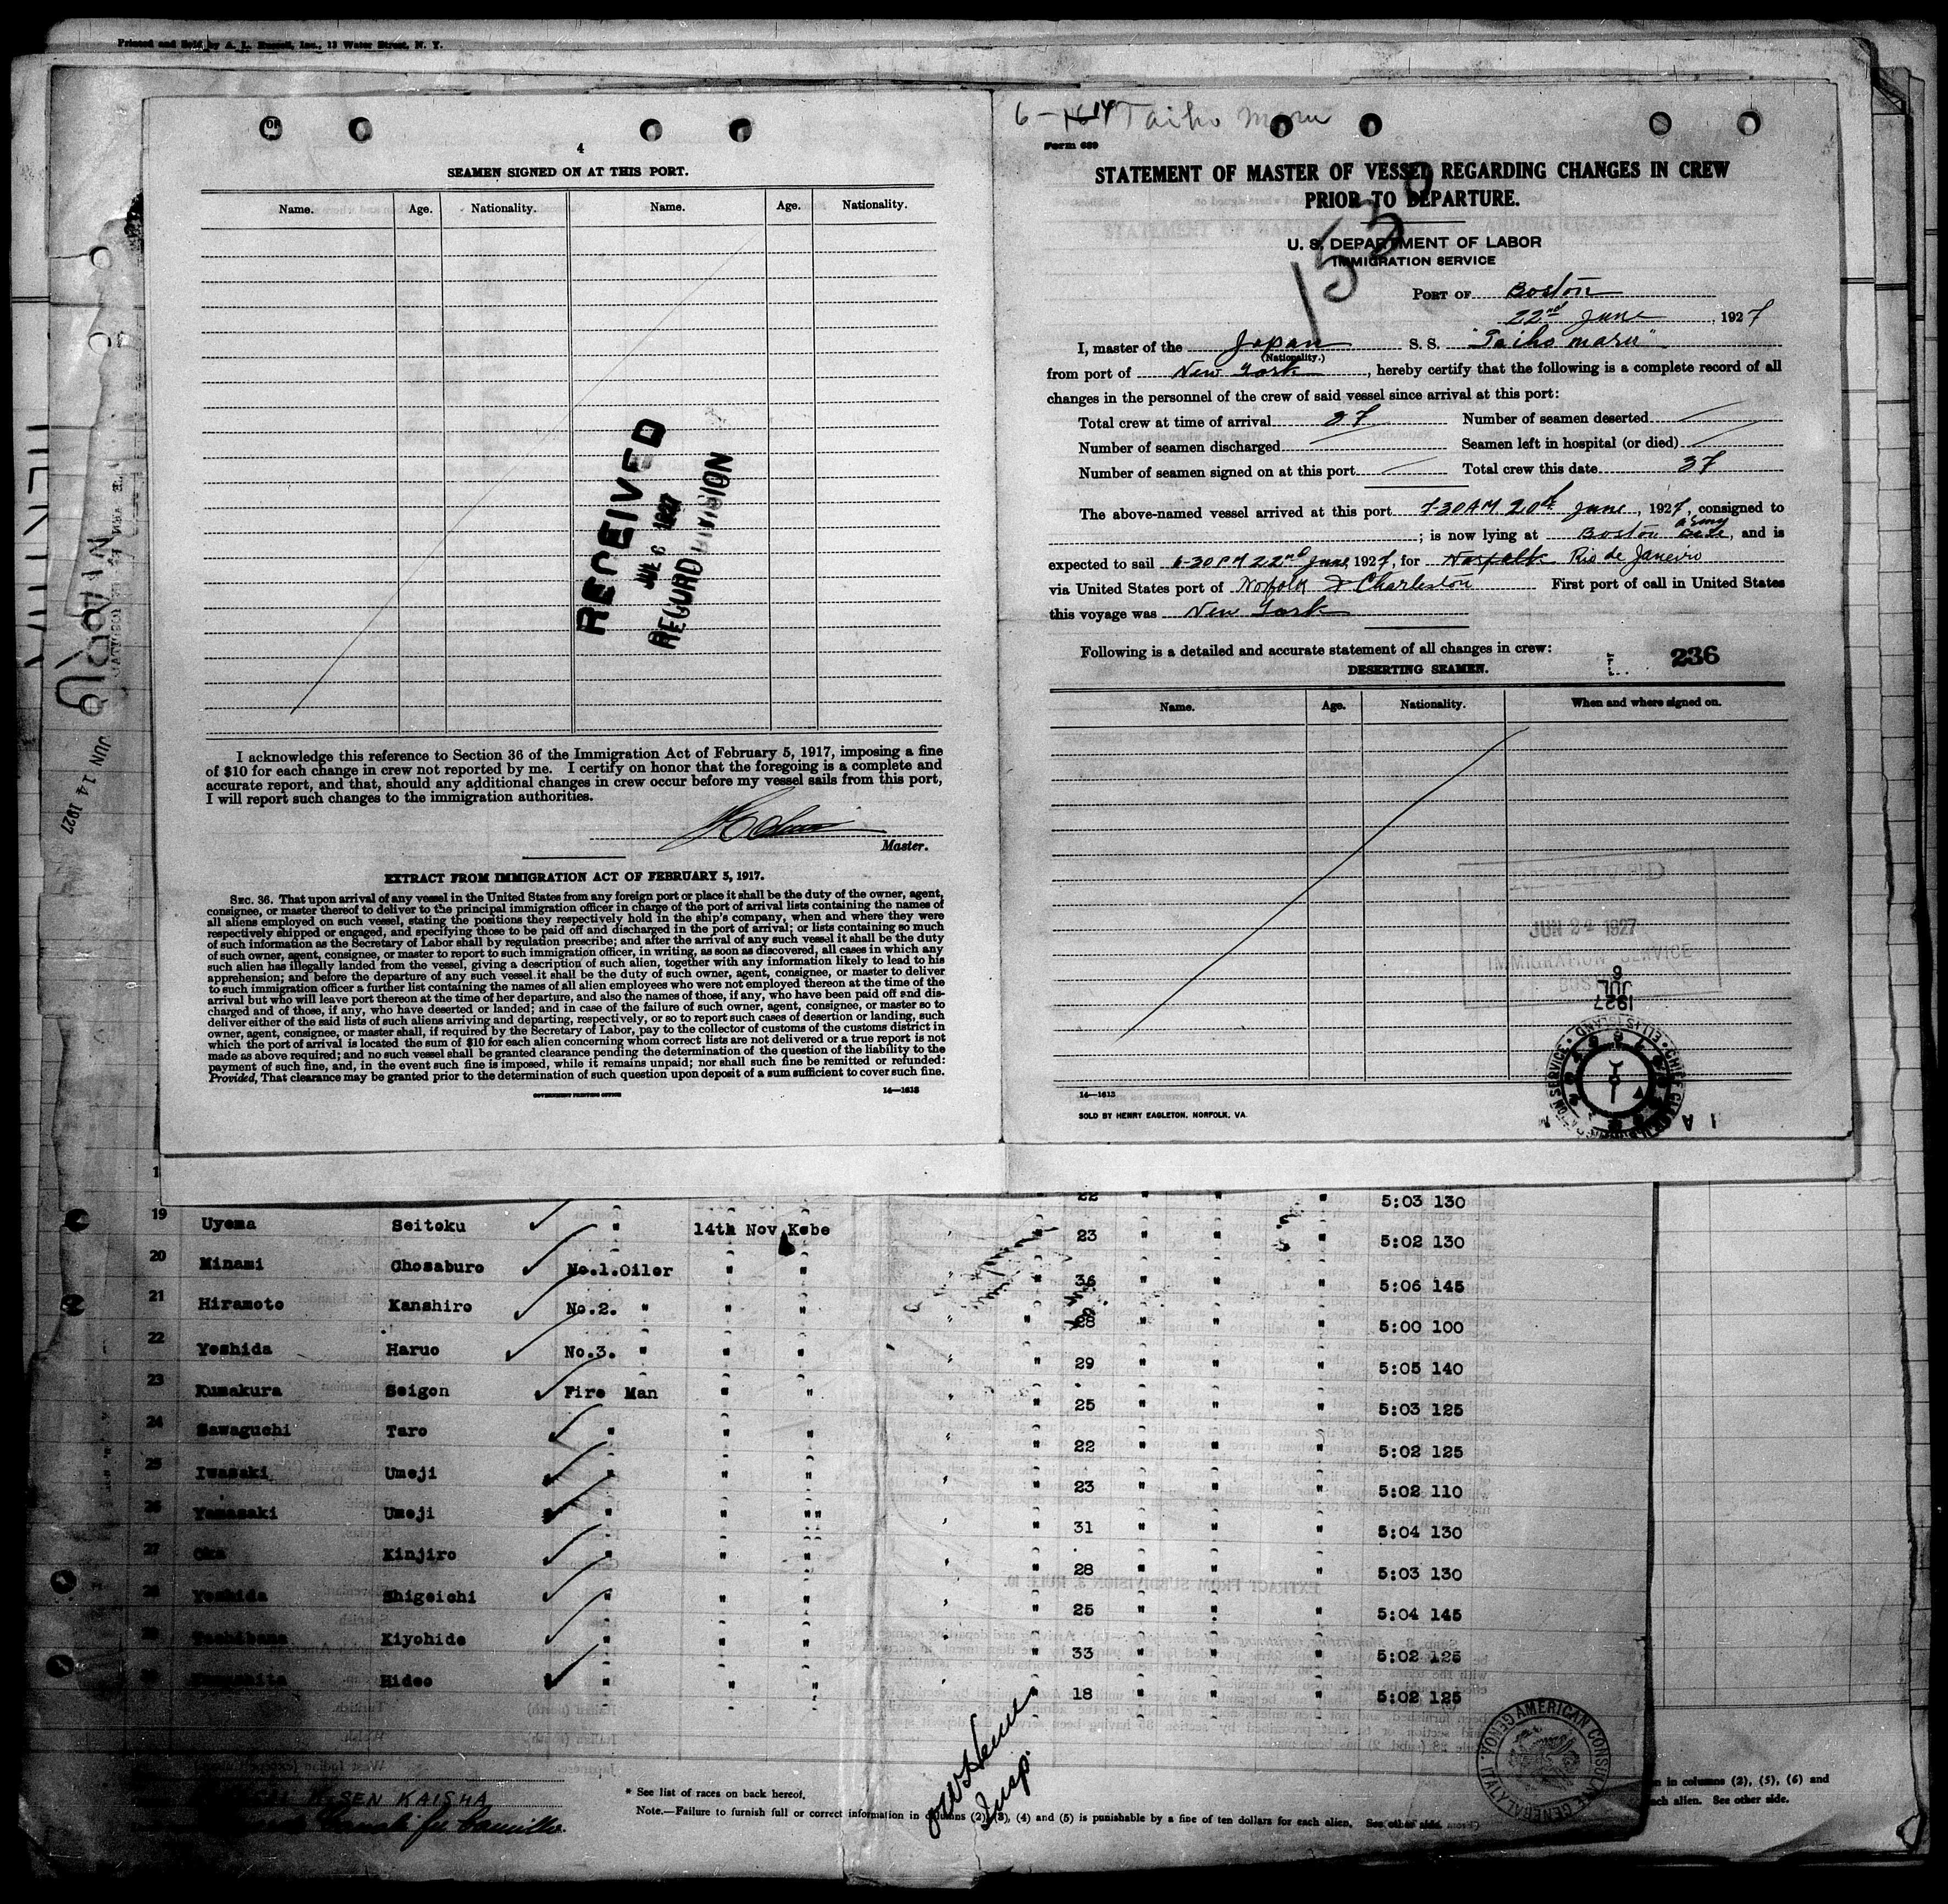 Printed and Sold by A. L. Russell, Inc., 13 Water Street, N. Y.
4
SEAMEN SIGNED ON AT THIS PORT.
Name. Age. Nationality. Name. Age. Nationality.
RECEIVED
JUL 8 1927
RECORD DIVISION
I acknowledge this reference to Section 36 of the Immigration Act of February 5, 1917, imposing a fine
of $10 for each change in crew not reported by me. I certify on honor that the foregoing is a complete and
accurate report, and that, should any additional changes in crew occur before my vessel sails from this port,
I will report such changes to the immigration authorities.
Master.
EXTRACT FROM IMMIGRATION ACT OF FEBRUARY 5, 1917.
SEC. 36. That upon arrival of any vessel in the United States from any foreign port or place it shall be the duty of the owner, agent,
consignee, or master thereof to deliver to the principal immigration officer in charge of the port of arrival lists containing the names of
all aliens employed on such vessel, stating the positions they respectively hold in the ship's company, when and where they were
respectively shipped or engaged, and specifying those to be paid off and discharged in the port of arrival; or lists containing so much
of such information as the Secretary of Labor shall by regulation prescribe; and after the arrival of any such vessel it shall be the duty
of such owner, agent, consignee, or master to report to such immigration officer, in writing, as soon as discovered, all cases in which any
such alien has illegally landed from the vessel, giving a description of such alien, together with any information likely to lead to his
apprehension; and before the departure of any such vessel it shall be the duty of such owner, agent, consignee, or master to deliver
to such immigration officer a further list containing the names of all alien employees who were not employed thereon at the time of the
arrival but who will leave port thereon at the time of her departure, and also the names of those, if any, who have been paid off and dis-
charged and of those, if any, who have deserted or landed; and in case of the failure of such owner, agent, consignee, or master so to
deliver either of the said lists of such aliens arriving and departing, respectively, or so to report such cases of desertion or landing, such
owner, agent, consignee, or master shall, if required by the Secretary of Labor, pay to the collector of customs of the customs district in
which the port of arrival is located the sum of $10 for each alien concerning whom correct lists are not delivered or a true report is not
made as above required; and no such vessel shall be granted clearance pending the determination of the question of the liability to the
payment of such fine, and, in the event such fine is imposed, while it remains unpaid; nor shall such fine be remitted or refunded:
Provided, That clearance may be granted prior to the determination of such question upon deposit of a sum sufficient to cover such fine.
GOVERNMENT PRINTING OFFICE 14—1613
6-14 Taiho Maru
Form 689
STATEMENT OF MASTER OF VESSEL REGARDING CHANGES IN CREW
PRIOR TO DEPARTURE.
U. S. DEPARTMENT OF LABOR
IMMIGRATION SERVICE
1530
PORT OF Boston
22nd June, 1927
I, master of the Japan S. S. "Taiho maru"
(Nationality.)
from port of New York, hereby certify that the following is a complete record of all
changes in the personnel of the crew of said vessel since arrival at this port:
Total crew at time of arrival 37 Number of seamen deserted
Number of seamen discharged Seamen left in hospital (or died)
Number of seamen signed on at this port Total crew this date 37
The above-named vessel arrived at this port 7-30 AM 20th June, 1927, consigned to
; is now lying at Boston army Base, and is
expected to sail 6-30 PM 22nd June 1927, for Norfolk Rio de Janeiro
via United States port of Norfolk & Charleston First port of call in United States
this voyage was New York
Following is a detailed and accurate statement of all changes in crew:
236
DESERTING SEAMEN.
Name. Age. Nationality. When and where signed on.
JUN 24 1927
IMMIGRATION SERVICE
BOSTON
JUL 6
1927
14—1613
SOLD BY HENRY EAGLETON, NORFOLK, VA
JUN 14 1927
22 " " " 5:03 130
19 Uyema Seitoku " 14th Nov Kobe " 23 " " " 5:02 130
20 Minami Chosaburo No.1.Oiler " " " 36 " " " 5:06 145
21 Hiramoto Kanshiro No.2. " " " " 28 " " " 5:00 100
22 Yoshida Haruo No.3. " " " " 29 " " " 5:05 140
23 Kumakura Seigon Fire Man " " " 25 " " " 5:03 125
24 Sawaguchi Taro " " " " 22 " " " 5:02 125
25 Iwasaki Umeji " " " " 23 " " " 5:02 110
26 Yamasaki Umeji " " " " 31 " " " 5:04 130
27 Oka Kinjiro " " " " 28 " " " 5:03 130
28 Yoshida Shigeichi " " " " 25 " " " 5:04 145
29 Tachibana Kiyohide " " " " 33 " " " 5:02 125
30 Hideo " " " " 18 " " " 5:02 125
KISEN KAISHA
Insp.
AMERICAN CONSULATE GENERAL GENOA, ITALY
* See list of races on back hereof.
Note.—Failure to furnish full or correct information in columns (2), (3), (4) and (5) is punishable by a fine of ten dollars for each alien. See other side.
n in columns (2), (5), (6) and
ach alien. See other side.